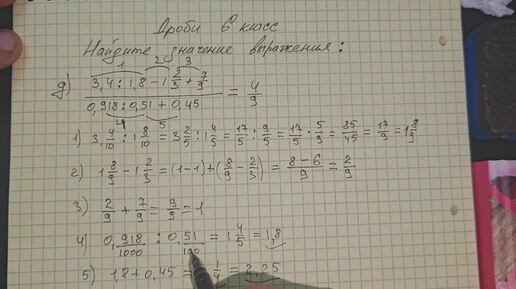 Дроби 6 класс
Найдите значение выражения:
1 2 3
g) (3,4 : 1,8 - 1 2/3 + 7/9) / (0,918 : 0,51 + 0,45) = 4/9
4 5
1) 3 4/10 : 1 8/10 = 3 2/5 : 1 4/5 = 17/5 : 9/5 = 17/5 · 5/9 = 85/45 = 17/9 = 1 8/9
2) 1 8/9 - 1 2/3 = (1-1) + (8/9 - 2/3) = (8-6)/9 = 2/9
3) 2/9 + 7/9 = 9/9 = 1
4) 0,918/1000 : 0,51/100 = 1 4/5 = 1,8
5) 1,8 + 0,45 = 1/4 = 2,25